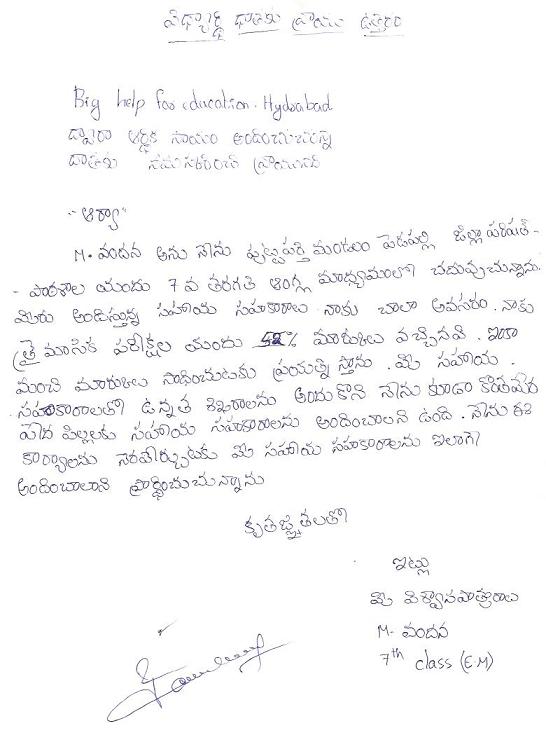 విద్యార్థి దాతకు వ్రాయు ఉత్తరం
Big help for education. Hyderabad
ద్వారా ఆర్థిక సాయం అందించుచున్న
దాతకు నమస్కరించి వ్రాయునది
"ఆర్యా"
M. వందన అను నేను పుట్టపర్తి మండలం పెడపల్లి జిల్లా పరిషత్ -
- పాఠశాల యందు 7 వ తరగతి ఆంగ్ల మాధ్యమంలో చదువుచున్నాను.
మీరు అందిస్తున్న సహాయ సహకారాలు నాకు చాలా అవసరం. నాకు
త్రైమాసిక పరీక్షల యందు 52% మార్కులు వచ్చినవి. ఇంకా
మంచి మార్కులు సాధించుటకు ప్రయత్నిస్తాను. మీ సహాయ.
సహకారాలతో ఉన్నత శిఖరాలను అందుకొని నేను కూడా కొంతమైన
పేద పిల్లలకు సహాయ సహకారాలను అందించాలని ఉంది. నేను ఈ
కార్యాలను నెరవేర్చుటకు మీ సహాయ సహకారాలను ఇలాగే
అందించాలని ప్రార్థించుచున్నాను
కృతజ్ఞతలతో
ఇట్లు
మీ విశ్వాసపాత్రురాలు
M. వందన
7th class (E.M)